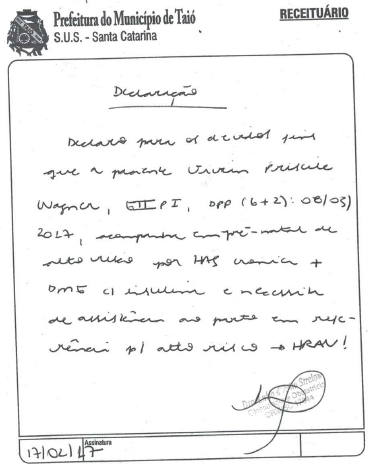 Prefeitura do Município de Taió
RECEITUÁRIO
S.U.S. - Santa Catarina
Declaração
Declaro para os devidos fins
que a paciente Vivian Priscile
Wagner, GII PI, DPP (6+2): 08/03/
2017, acompanha em pré-natal de
alto risco por HAS cronica +
DMG c/ insulina e necessita
de assistência ao parto em refe-
rência p/ alto risco → HRAV!
17/02/17
Assinatura